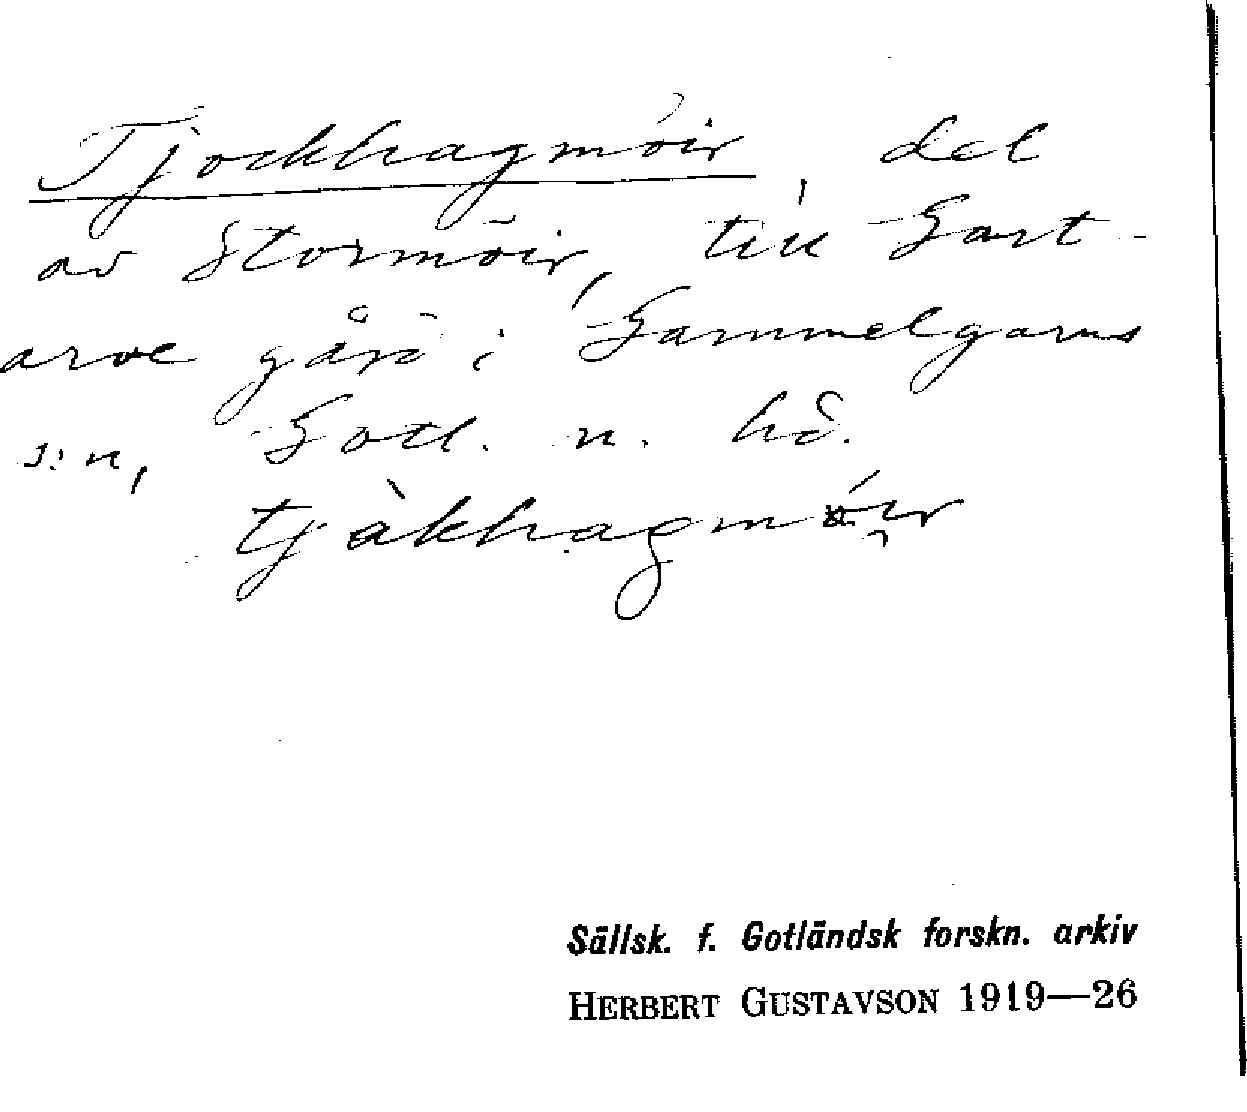 Tjockhagmöir, del
av Stormöir, till Gart-
arve gård i Gammelgarns
s:n, Gotl. n. hd.
tjàkhagmóir
Sällsk. f. Gotländsk forskn. arkiv
HERBERT GUSTAVSON 1919—26